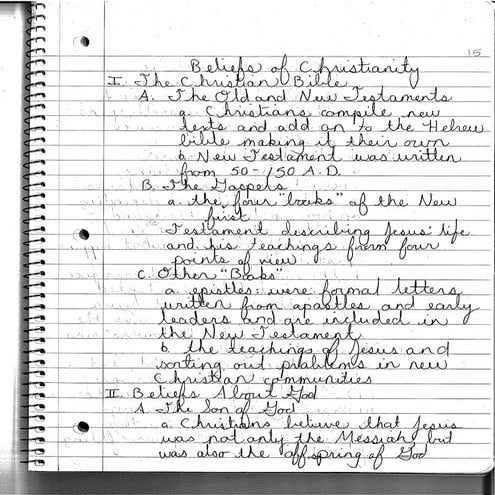 15
Beliefs of Christianity
I. The Christian Bible
A. The Old and New Testaments
a. Christians compile new
texts and add on to the Hebrew
bible making it their own
b. New Testament was written
from 50-150 A.D.
B. The Gospels
a. the four "books" of the New
first
Testament describing Jesus' life
and his teachings from four
points of view
C. Other "Books"
a. epistles: were formal letters
written from apostles and early
leaders and are included in
the New Testament
b. the teachings of Jesus and
sorting out problems in new
Christian communities
II. Beliefs About God
A. The Son of God
a. Christians believe that Jesus
was not only the Messiah, but
was also the offspring of God